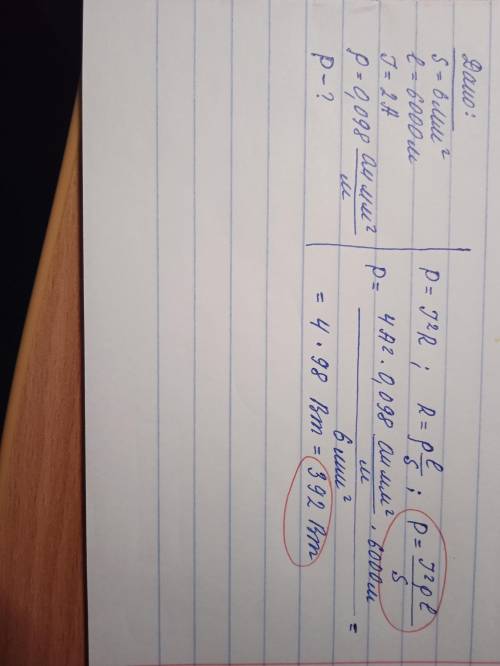 Дано:
S = 6 мм²
l = 6000 м
J = 2 А
ρ = 0,098 Ом мм² / м
P - ?
P = J²R ; R = ρ l/S ; P = J²ρl / S
P = 4А² · 0,098 Ом мм² / м · 6000 м / 6 мм² =
= 4 · 98 Вт = 392 Вт